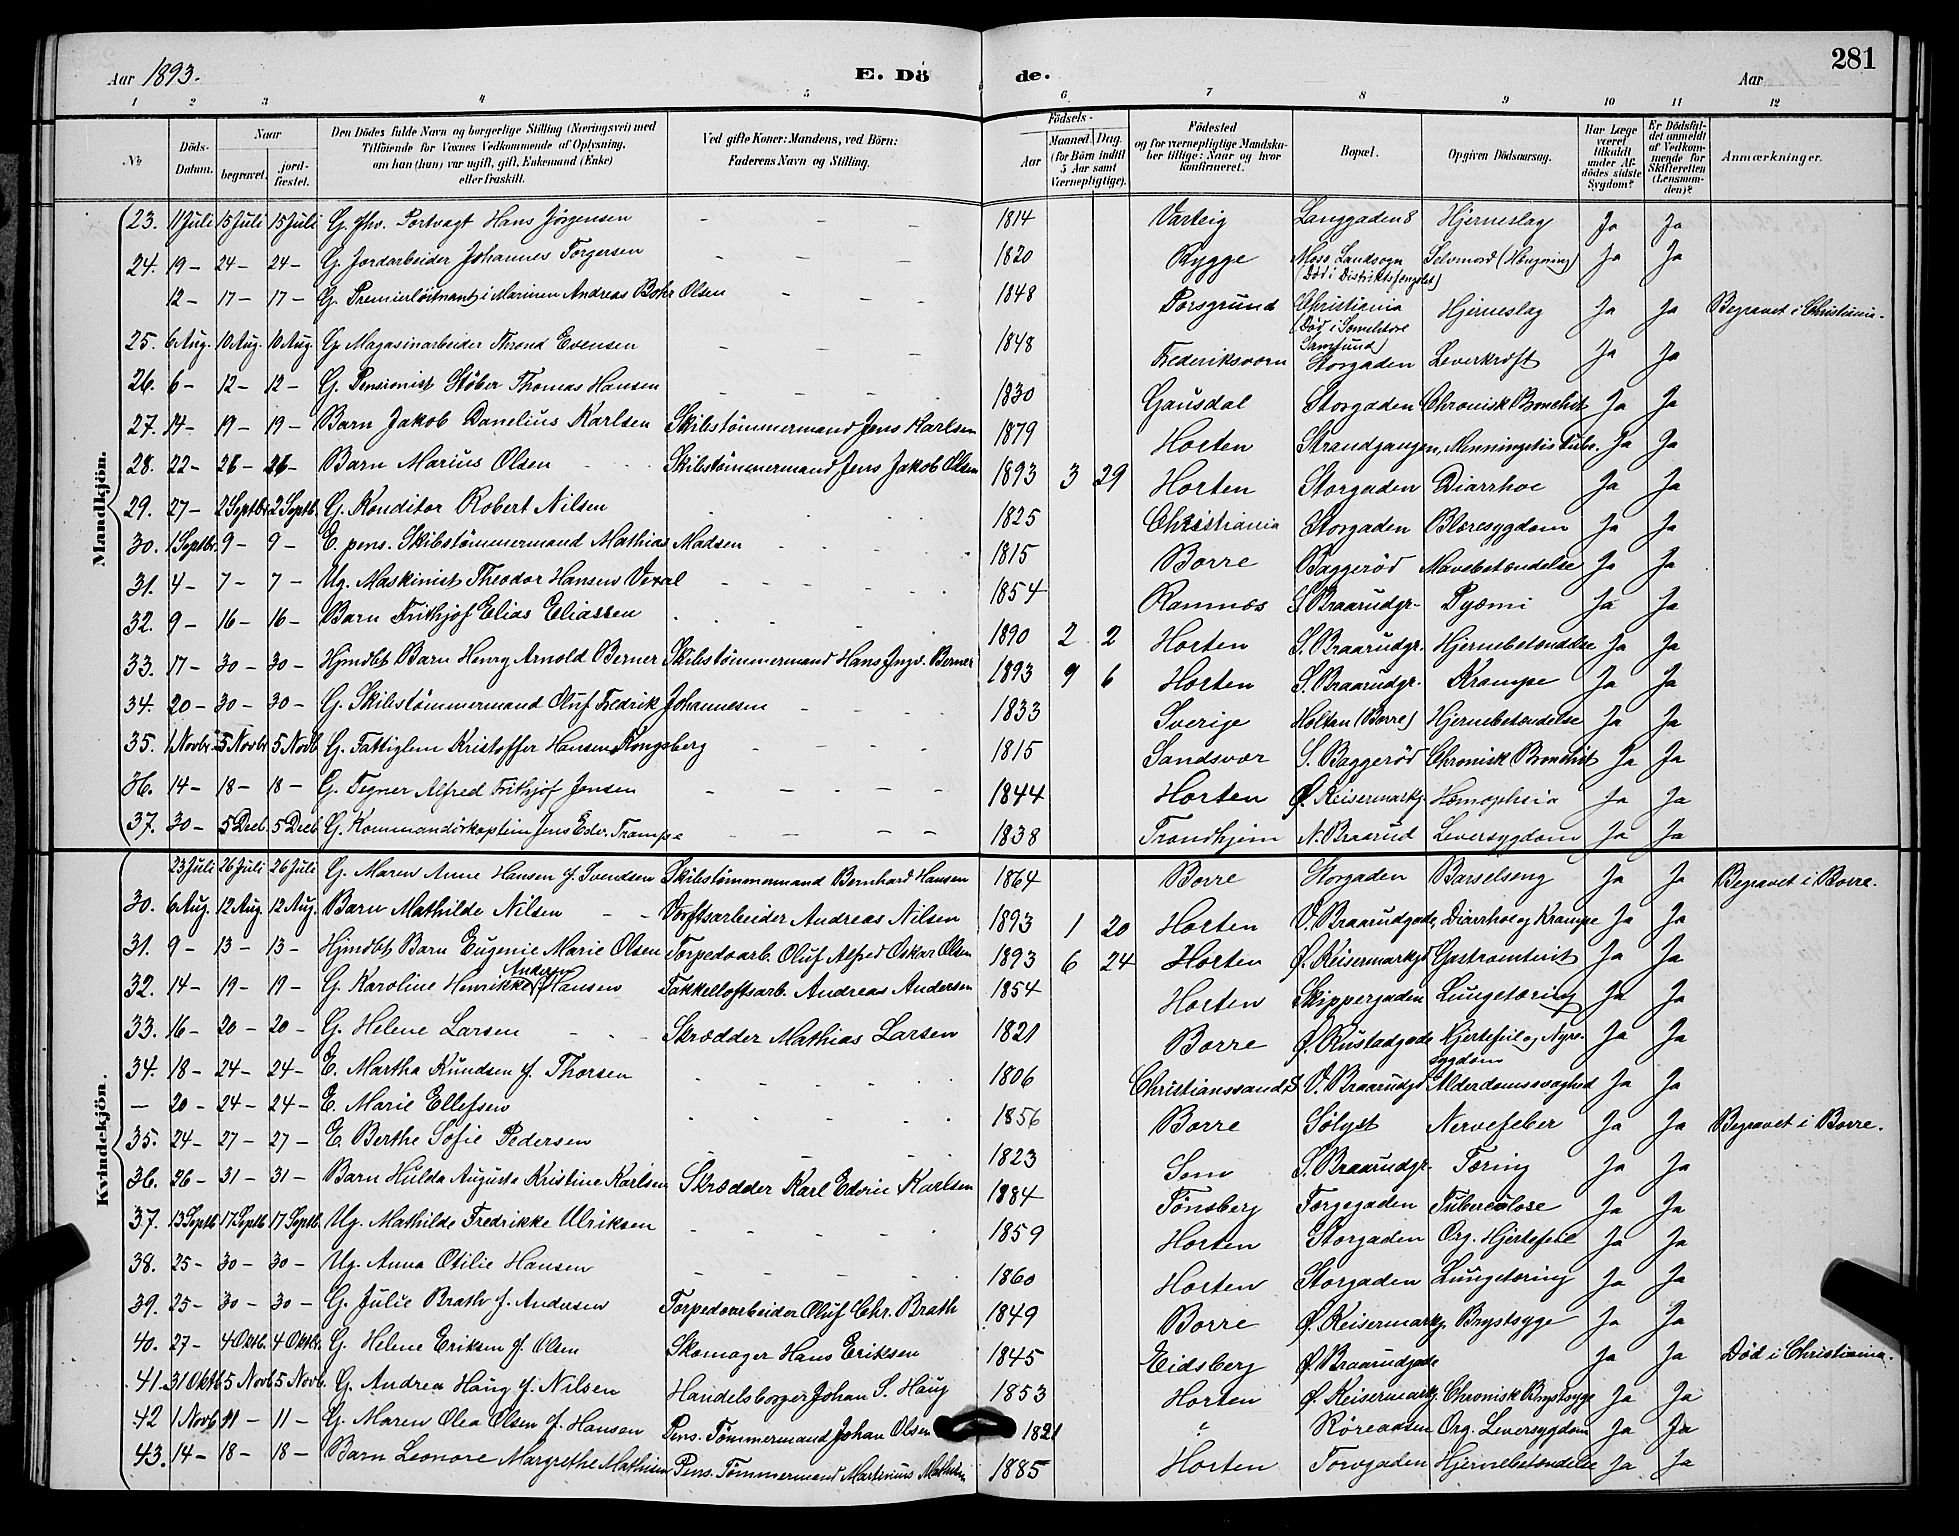 Aar 1893. E. Dö de. Aar 281
1 2 3 4 5 6 7 8 9 10 11 12
No Döds-Datum. Naar begravet. jordfæstet. Den Dödes fulde Navn og borgerlige Stilling (Næringsvei) med Tilföiende for Voxnes Vedkommende af Oplysning, om han (hun) var ugift, gift, Enkemand (Enke) eller fraskilt. Ved gifte Koner: Mandens, ved Börn: Faderens Navn og Stilling. Födsels- Aar Maaned Dag (for Börn indtil 5 Aar samt Værnepligtige). Födested og for værnepligtige Mandskaber tillige: Naar og hvor konfirmeret. Bopæl. Opgiven Dödsaarsag. Har Læge været tilkaldt under Afdödes sidste Sygdom? Er Dödsfaldet anmeldt af Vedkommende for Skifteretten (Lensmanden)? Anmærkninger.
Mandkjön.
23. 11 Juli 15 Juli 15 Juli G. fhv. Portvagt Hans Jørgensen - - - 1814 Varteig Langgaden 8 Hjerneslag Ja Ja
24. 19 - 24 - 24 - G. Jordarbeider Johannes Torgersen - - - 1820 Rygge Moss Landsogn (Død i Distriktsfængslet) Selvmord (Hængning) Ja Ja
12 - 17 - 17 - G. Premierløitnant i Marinen Andreas Bohr Olsen - - - 1848 Porsgrund Christiania (Død i Somletore Samfund) Hjerneslag Ja Ja Begravet i Christiania.
25. 6 Aug. 10 Aug. 10 Aug. G. Magasinarbeider Thrond Evensen - - - 1848 Frederiksværn Storgaden Leverkræft Ja Ja
26. 6 - 12 - 12 - G. Pensionist Støber Thomas Hansen - - - 1830 Gausdal Storgaden Chronisk Bronchit Ja Ja
27. 14 - 19 - 19 - Barn Jakob Danelius Karlsen Skibstømmermand Jens Karlsen 1879 Horten Strandgangen, Menningetis Tube. Ja Ja
28. 22 - 26 - 26 - Barn Marius Olsen Skibstømmermand Jens Jakob Olsen 1893 3 29 Horten Storgaden Diarrhoe Ja Ja
29. 27 - 2 Septbr 2 Septb. G. Konditor Robert Nilsen 1825 Christiania Storgaden Blæresygdom Ja Ja
30. 1 Septbr. 9 - 9 - E. pens. Skibstømmermand Mathias Madsen 1815 Borre Baggerød Mavebetændelse Ja Ja
31. 4 - 7 - 7 - Ug. Maskinist Theodor Hansen Vexal - - - 1854 Ramnæs S. Braarudgr. Pyæmi Ja Ja
32. 9 - 16 - 16 - Barn Frithjof Elias Eliassen 1890 2 2 Horten S. Braarudgr. Hjernebetændelse Ja Ja
33. 17 - 30 - 30 - Hjmdbt Barn Henry Arnold Berner Skibstømmermand Hans Ingv. Berner 1893 9 6 Horten S. Braarudgr. Krampe Ja Ja
34. 20 - 30 - 30 - G. Skibstømmermand Oluf Fredrik Johannesen - - - 1833 Sverige Holtan (Borre) Hjernebetændelse Ja Ja
35. 1 Novbr. 5 Novbr 5 Novb. G. Fattiglem Kristoffer Hansen Kongsberg - - - 1815 Sandsvær S. Baggerød Chronisk Bronchit Ja Ja
36. 14 - 18 - 18 - G. Tegner Alfred Frithjof Jensen - - - - 1844 Horten Ø. Keisermarkg. Hæmophsia Ja Ja
37. 30 - 5 Decb. 5 Decb G. Kommandørkaptein Jens Edv. Trampe - - - 1838 Trondhjem N. Braarud Leversygdom Ja Ja
Kvindekjön.
23 Juli 26 Juli 26 Juli G. Maren Anne Hansen f. Svendsen Skibstømmermand Bernhard Hansen 1864 Borre Storgaden Barselseng Ja Ja Begravet i Borre.
30. 6 Aug. 12 Aug. 12 Aug. Barn Mathilde Nilsen - - Værftsarbeider Andreas Nilsen 1893 1 20 Horten V. Braarudgade, Diarrhoe og Krampe Ja Ja
31. 9 - 13 - 13 - Hjmdbt Barn Eugenie Marie Olsen Torpedoarb. Oluf Alfred Oskar Olsen 1893 6 24 Horten Ø. Keisermarkgd Gastroenterit Ja Ja
32. 14 - 19 - 19 - G. Karoline Henrikke Andersen f. Hansen Takkelloftsarb. Andreas Andersen 1854 Horten Skippergaden Lungetæring Ja Ja
33. 16 - 20 - 20 - G. Helene Larsen - - Skrædder Mathias Larsen 1821 Borre Ø. Rustadgade Hjertefeil og Nyresygdom Ja Ja
34. 18 - 24 - 24 - E. Martha Knudsen f. Thorsen 1806 Christianssand S V. Braarudgd Alderdomssvaghed Ja Ja
— 20 - 24 - 24 - E. Marie Ellefsen 1856 Borre Sølyst Nervefeber Ja Ja Begravet i Borre.
35. 24 - 27 - 27 - E. Berthe Sofie Pedersen 1823 Sem S. Braarudgr. Tæring Ja Ja
36. 26 - 31 - 31 - Barn Hulda Augusta Kristine Karlsen Skrædder Karl Edvin Karlsen 1884 Tønsberg Torgegaden Tuberculose Ja Ja
37. 13 Septb 17 Septb 17 Septb. Ug. Mathilde Fredrikke Ulriksen 1859 Horten Storgaden Org. Hjertefeil Ja Ja
38. 25 - 30 - 30 - Ug. Anna Otilie Hansen - - - - 1860 Horten Storgaden Lungetæring Ja Ja
39. 25 - 30 - 30 - G. Julie Brath f. Andersen Torpedoarbeider Oluf Chr. Brath 1849 Borre Ø. Keisermarkg. Brystsyge Ja Ja
40. 27 - 4 Oktb. 4 Oktbr. G. Helene Eriksen f. Olsen Skomager Hans Eriksen 1845 Eidsberg Ø. Braarudgade Ja Ja Død i Christiania.
41. 31 Oktb 5 Novb 5 Novb. G. Andrea Haug f. Nilsen Handelsborger Johan S. Haug 1853 Horten Ø. Keisermarkg. Chronisk Brystsyge Ja Ja
42 1 Novb 11 - 11 - G. Maren Olea Olsen f. Hansen Pens. Tømmermand Johan Olsen 1821 " Røreaasen Org. Leversygdom Ja Ja
43. 14 - 18 - 18 - Barn Leonore Margrethe Mathisen Pens. Tømmermand Martinius Mathisen 1885 Horten Torvgaden Hjernebetændelse Ja Ja